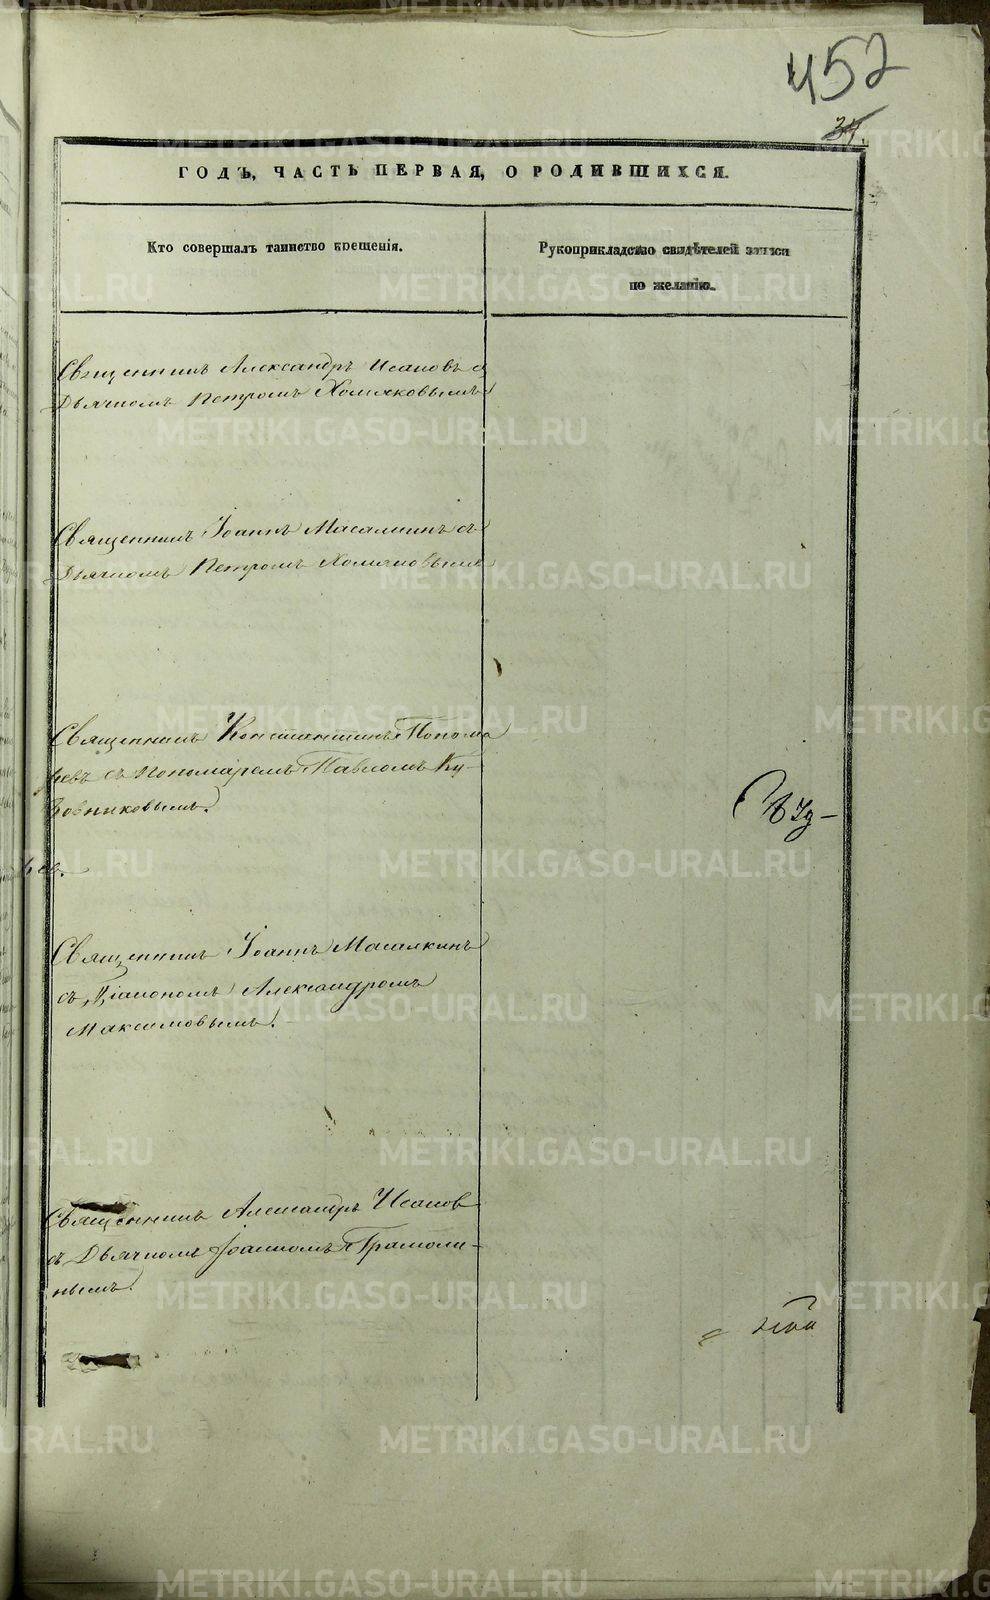 452
34.
ГОДЪ, ЧАСТЬ ПЕРВАЯ, О РОДИВШИХСЯ.
Кто совершалъ таинство крещенія.
Рукоприкладство свидѣтелей записи
по желанію.
Священникъ Александръ Исаковъ съ
Дьячкомъ Петромъ Хомяковымъ
Священникъ Іоаннъ Масалкинъ съ
Дьячкомъ Петромъ Хомяковымъ
Священникъ Константинъ Понома
ревъ съ Пономаремъ Павломъ Ку-
зовниковымъ.
Священникъ Іоаннъ Масалкинъ
съ Діакономъ Александромъ
Максимовымъ.
Священникъ Александръ Исаков
съ Дьячкомъ Іоанномъ Грамоли-
нымъ.
METRIKI.GASO-URAL.RU